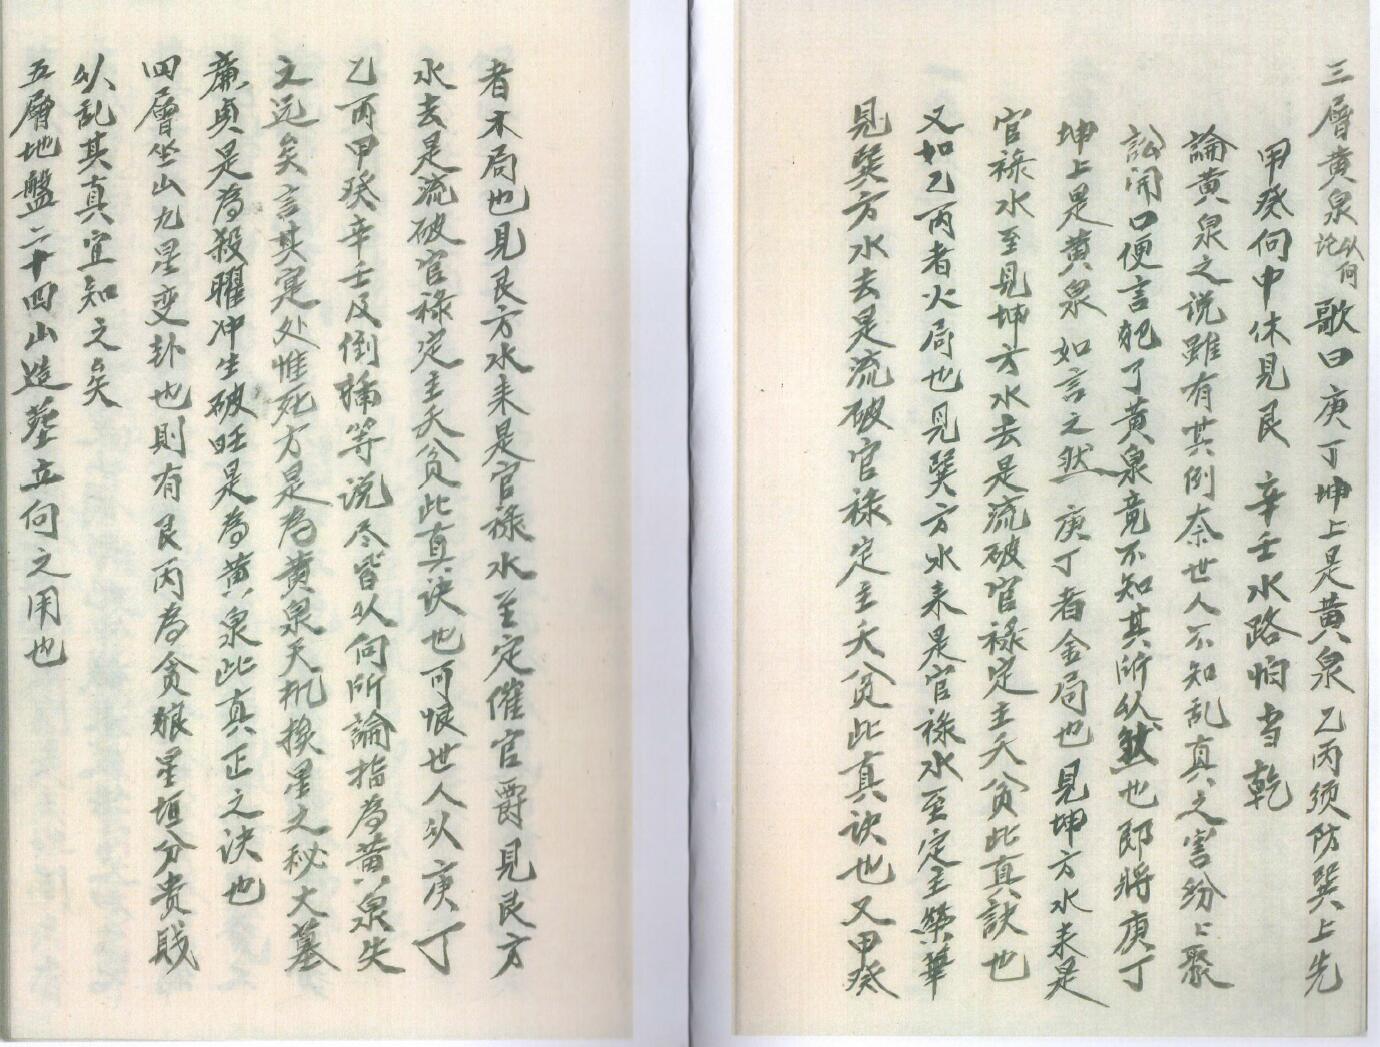 三層黃泉論以向歌曰庚丁坤上是黃泉乙丙须防巽上先
甲癸向中休見艮 辛壬水路怕当乾
論黃泉之说雖有其例奈世人不知乱真之害纷々聚
訟開口便言犯了黃泉竟不知其所以然也即將庚丁
坤上是黃泉如言之然庚丁者金局也見坤方水来是
官祿水至見坤方水去是流破官祿定主夭貧此真訣也
又如乙丙者火局也見巽方水来是官祿水至定主榮華
見巽方水去是流破官祿定主夭貧此真诀也又甲癸
者木局也見艮方水来是官祿水至定催官爵見艮方
水去是流破官祿定主夭貧此真诀也可恨世人以庚丁
乙丙甲癸辛壬及倒等说尽皆以向所論指為黃泉失
之远矣言其寔处惟死方是為黃泉天机換星之秘大墓
廉貞是為殺曜冲生破旺是為黃泉此真正之决也
四層坐山九星变卦也則有艮丙為贪狼星垣分贵贱
以乱其真宜知之矣
五層地盤二十四山造塟立向之用也